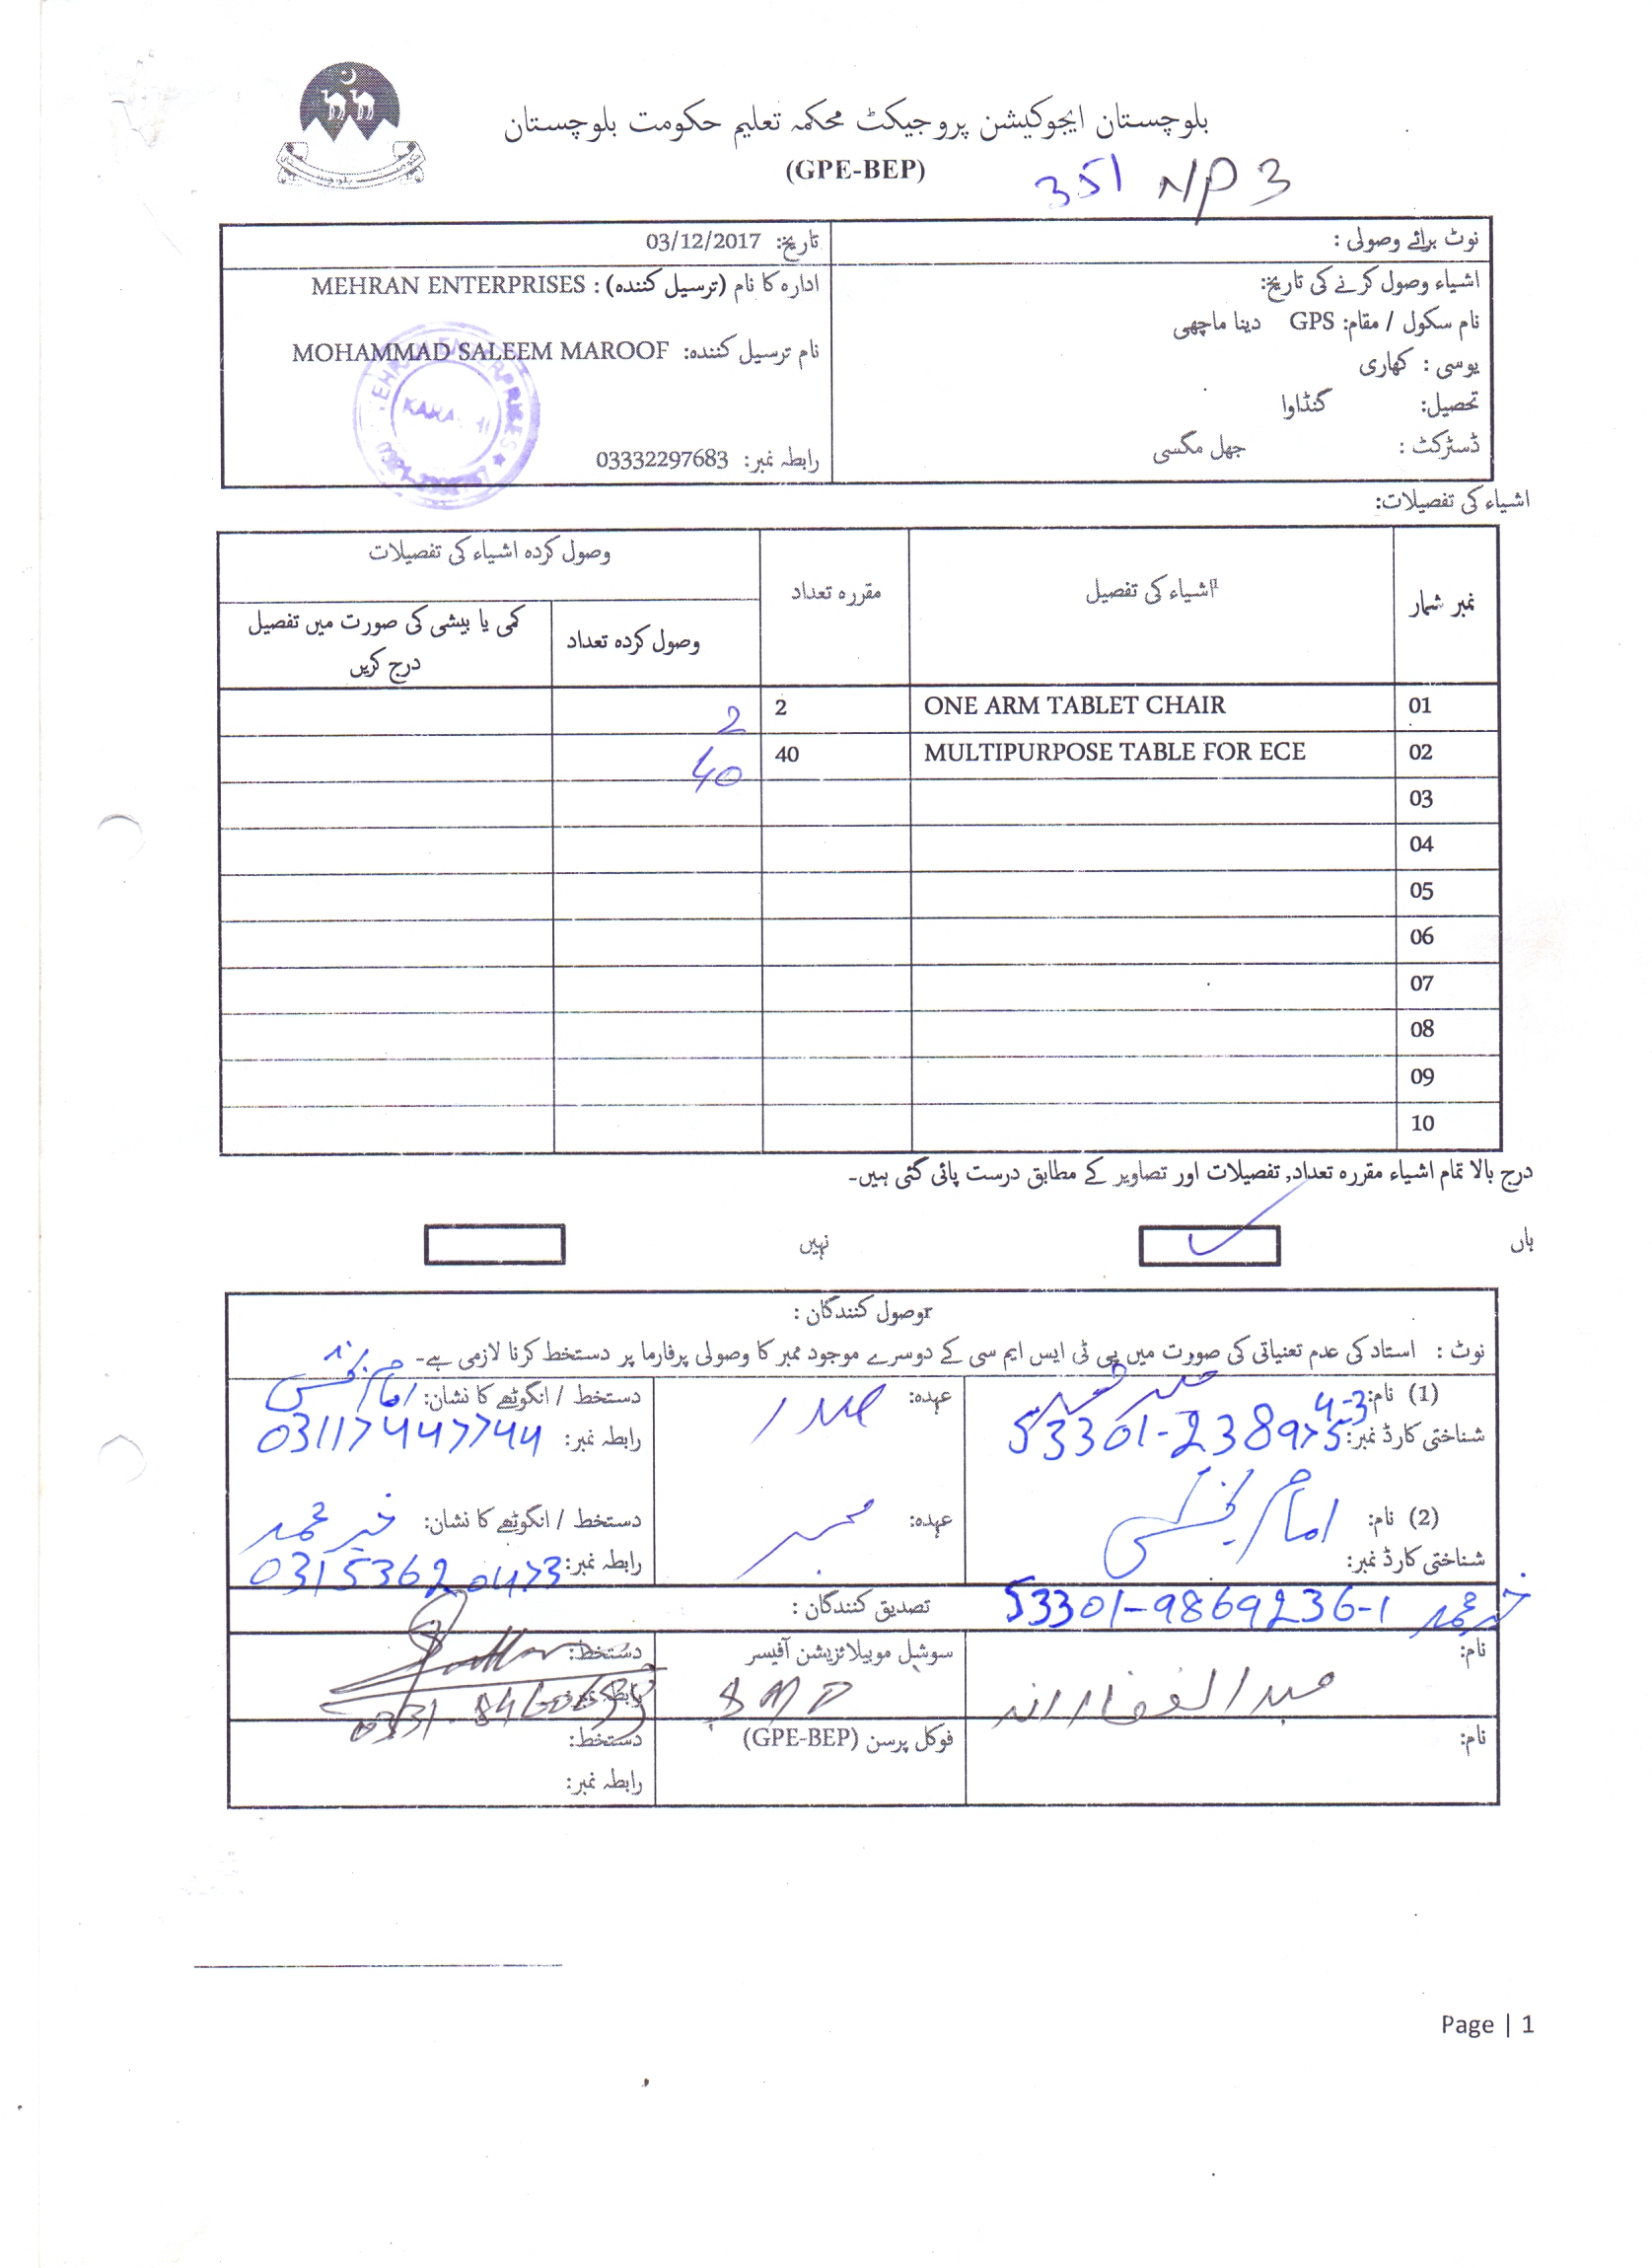 بلوچستان ایجوکیشن پروجیکٹ محکمہ تعلیم حکومت بلوچستان
(GPE-BEP)
351 NP 3
نوٹ برائے وصولی :
تاریخ: 03/12/2017
اشیاء وصول کرنے کی تاریخ:
ادارہ کا نام (ترسیل کنندہ) : MEHRAN ENTERPRISES
نام سکول / مقام: GPS دینا ماچھی
نام ترسیل کنندہ: MOHAMMAD SALEEM MAROOF
یوسی : کھاری
تحصیل: گنڈاوا
ڈسٹرکٹ : جھل مگسی
رابطہ نمبر: 03332297683
اشیاء کی تفصیلات:
نمبر شمار اشیاء کی تفصیل مقررہ تعداد وصول کردہ اشیاء کی تفصیلات
وصول کردہ تعداد کمی یا بیشی کی صورت میں تفصیل درج کریں
01 ONE ARM TABLET CHAIR 2 2
02 MULTIPURPOSE TABLE FOR ECE 40 40
03
04
05
06
07
08
09
10
درج بالا تمام اشیاء مقررہ تعداد, تفصیلات اور تصاویر کے مطابق درست پائی گئی ہیں۔
ہاں نہیں
وصول کنندگان :
نوٹ : استاد کی عدم تعنیاتی کی صوورت میں پی ٹی ایس ایم سی کے دوسرے موجود ممبر کا وصولی پرفارما پر دستخط کرنا لازمی ہے۔
(1) نام: عہدہ: صدر دستخط / انگوٹھے کا نشان: امام بخش
شناختی کارڈ نمبر: 53301-2389754-3 رابطہ نمبر: 03117447744
(2) نام: امام بخش عہدہ: ممبر دستخط / انگوٹھے کا نشان: خیر محمد
شناختی کارڈ نمبر: رابطہ نمبر: 03153620473
خیر محمد 53301-9869236-1 تصدیق کنندگان :
نام: عبدالغفار سوشل موبیلائزیشن آفیسر SMO دستخط:
رابطہ نمبر:
نام: فوکل پرسن (GPE-BEP) دستخط:
رابطہ نمبر:
Page | 1